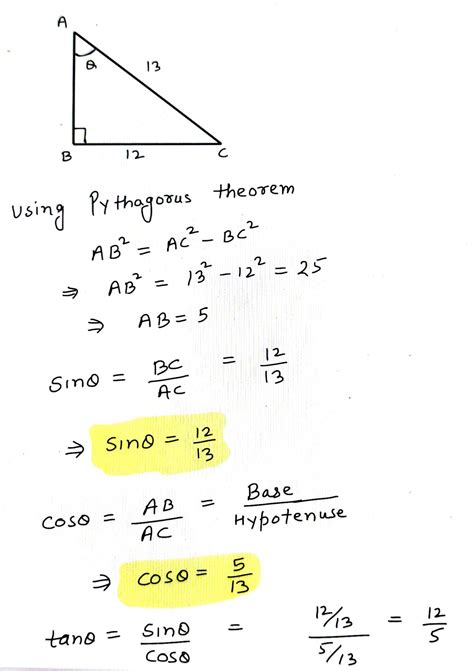 A
θ
13
B
12
C
Using Pythagorus theorem
AB² = AC² - BC²
⇒ AB² = 13² - 12² = 25
⇒ AB = 5
Sinθ = BC/AC = 12/13
⇒ Sinθ = 12/13
Cosθ = AB/AC = Base/Hypotenuse
⇒ Cosθ = 5/13
tanθ = Sinθ/Cosθ = (12/13)/(5/13) = 12/5